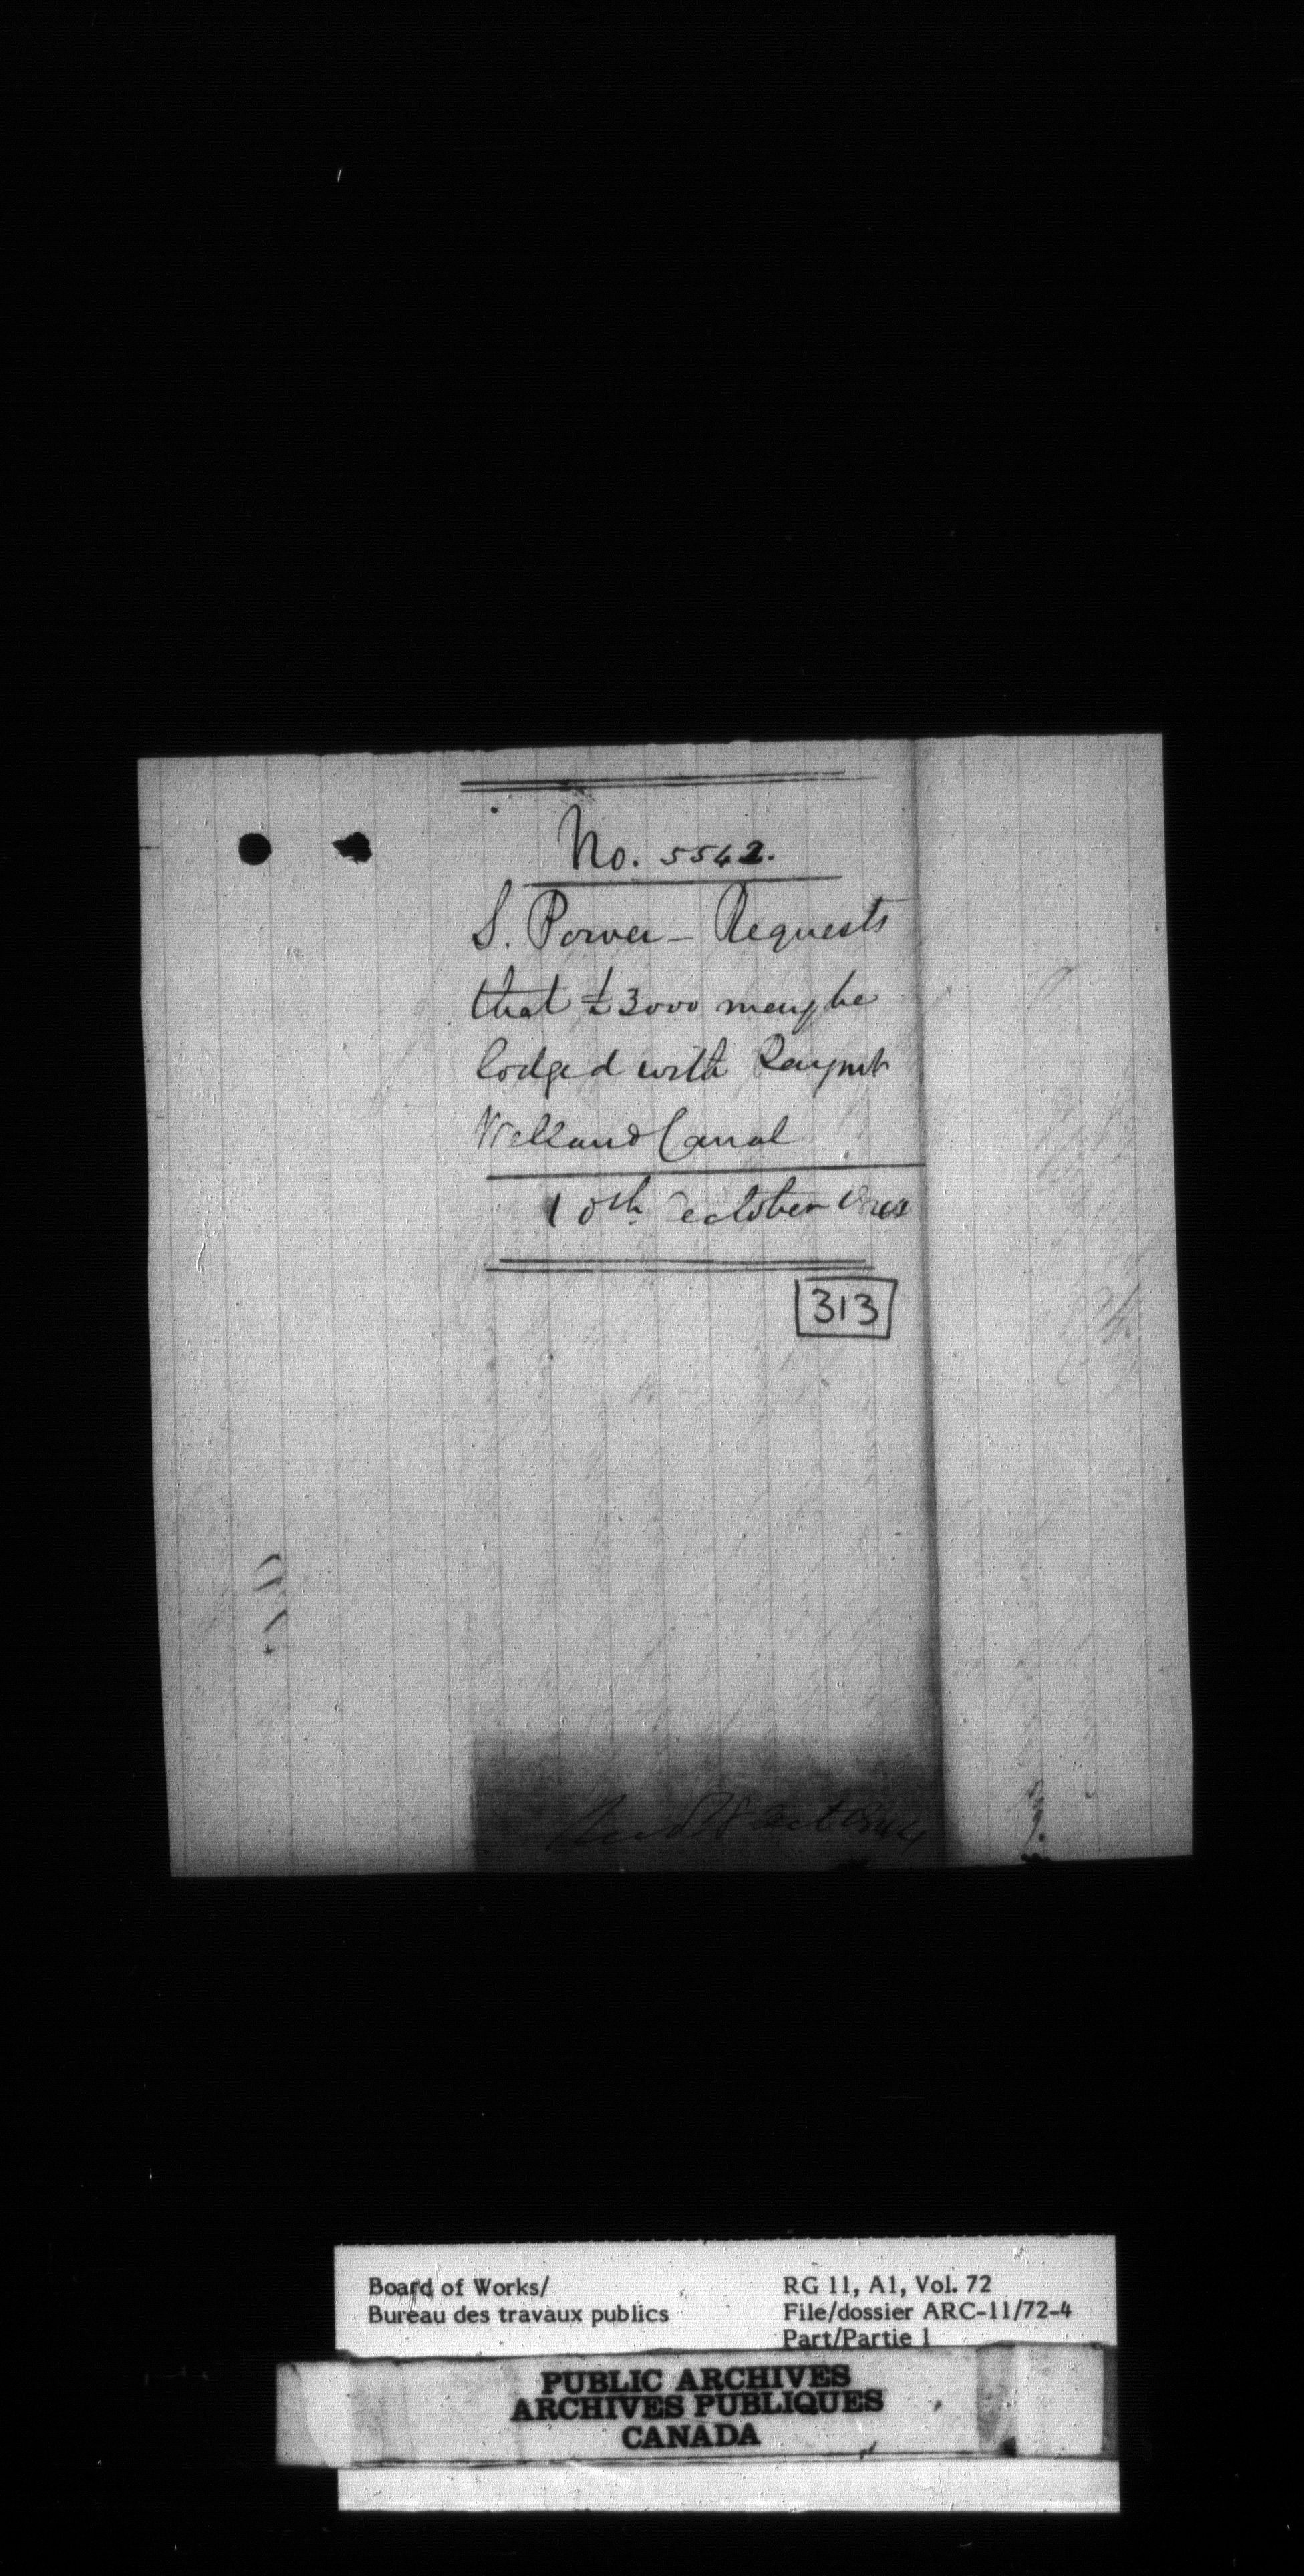 No. 5542.
S. Power - Requests
that £3000 may be
lodged with Paymt
Welland Canal
10th October
313
Board of Works/
Bureau des travaux publics
RG 11, A1, Vol. 72
File/dossier ARC-11/72-4
Part/Partie 1
PUBLIC ARCHIVES
ARCHIVES PUBLIQUES
CANADA